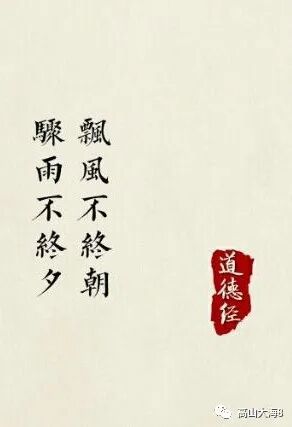 飄風不終朝
驟雨不終夕
道德经
高山大海8